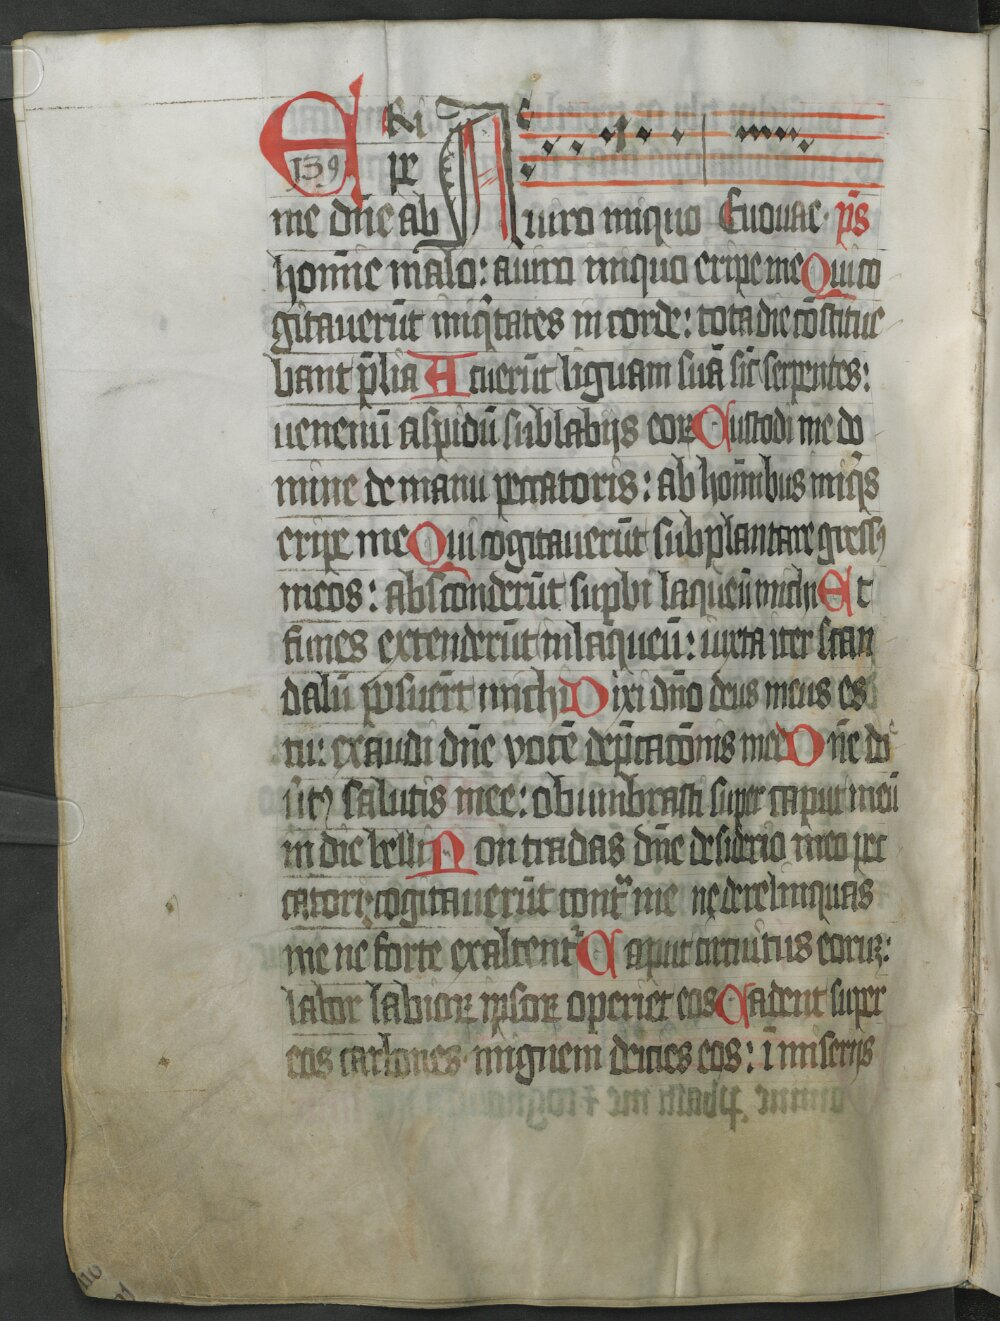 ERi
139 pe
me dn̄e ab A uiro iniquo Euouae· p̄s
homīe malo: a uiro iniquo eripe me Qui co
gitauerūt iniq̇tates in corde: tota die cōstitue
bant p̄lia Acuerūt liguam suā sic̄ serpentes:
uenenū aspidū sub labijs eoꝝ Custodi me do
mine de manu peccatoris: ab homībus iniq̇s
eripe me Qui cogitauerūt subplantare gressꝰ
meos: absconderūt supb̄i laqueū michi Et
funes extenderūt in laqueū: iuxta iter scan
dalū posuer̄t michi Dixi dn̄o deus meus es
tu: exaudi dn̄e vocē dep̄catōnis mee Dn̄e dn̄e
uirtꝰ salutis mee: obumbrasti super caput meū
in die belli Non tradas dn̄e desiderio meo pec
catori: cogitauerūt contͣ me ne derelinquas
me ne forte exaltentᷣ Caput circuitus eoruꝫ:
labor labioꝝ ipsoꝝ operiet eos Cadent super
eos carbones· in ignem deicies eos: ī miserijs
110